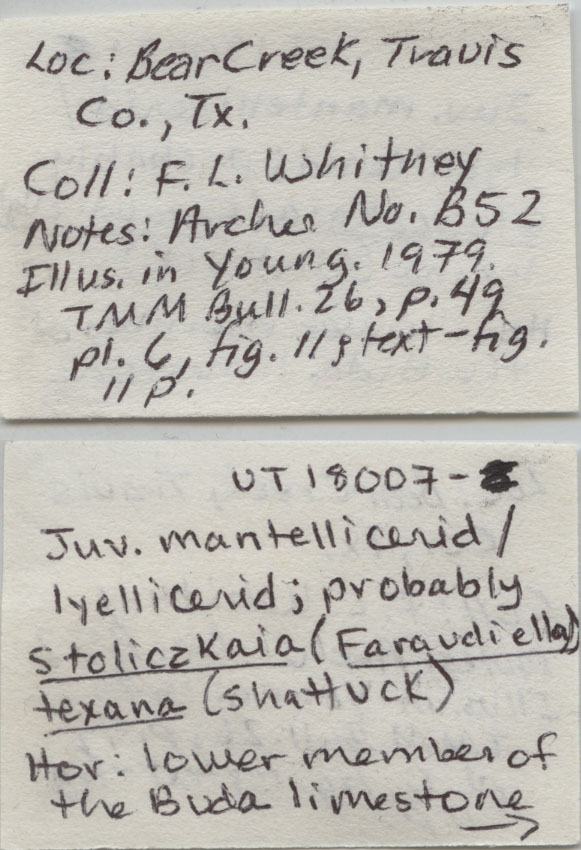 Loc: Bear Creek, Travis
Co., Tx.
Coll: F. L. Whitney
Notes: Archer No. B52
Illus. in Young. 1979.
TMM Bull. 26, p. 49
pl. 6, fig. 11; text-fig.
11 p.
UT 18007-
Juv. mantellicerid/
lyellicerid; probably
Stoliczkaia (Faraudiella)
texana (Shattuck)
Hor: lower member of
the Buda limestone
→